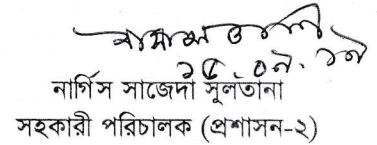 ১৫.০৯.১৯
নার্গিস সাজেদা সুলতানা
সহকারী পরিচালক (প্রশাসন-২)